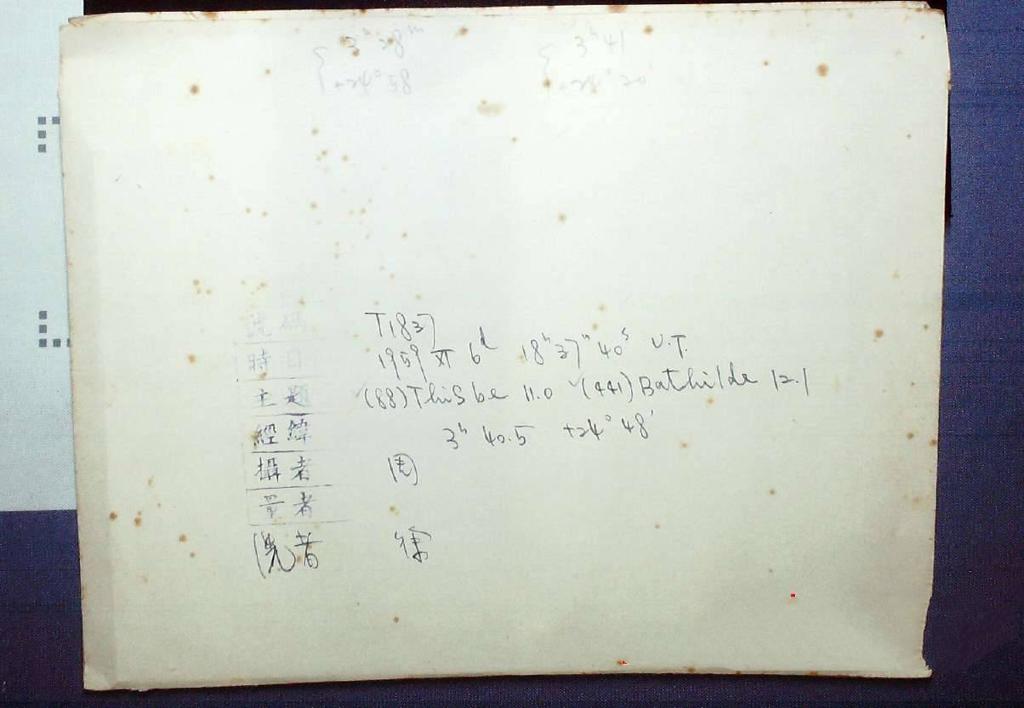 3ʰ 38ᵐ 3ʰ 41
+24° 58 +24° 20
號碼 T1837
時日 1959 XI 6ᵈ 18ʰ 37ᵐ 40ˢ U.T.
主題 ✓(88) Thisbe 11.0 ✓(441) Bathilde 12.1
經緯 3ʰ 40.5 +24° 48'
攝者 周
量者
洗者 徐